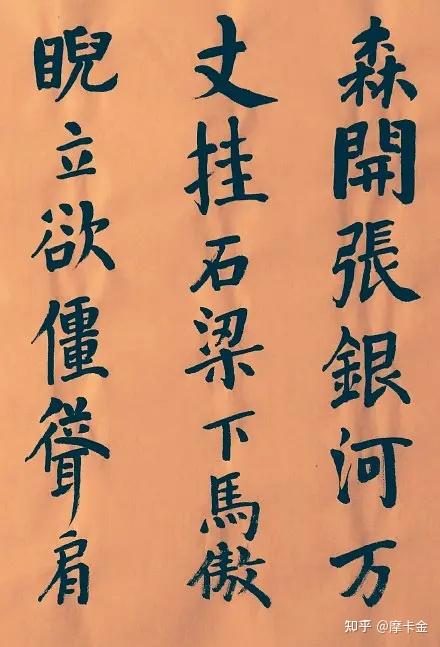 森開張銀河万
丈挂石梁下馬傲
睨立欲僵聳肩
知乎 @摩卡金